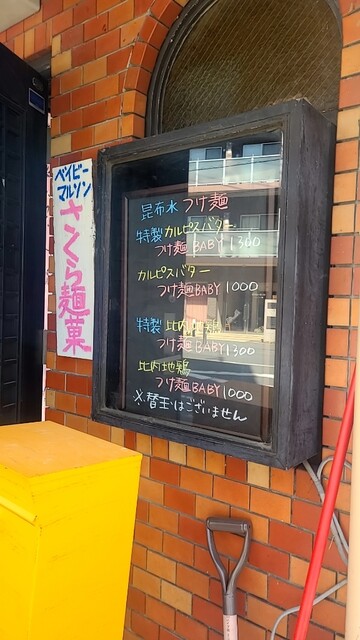 ベイビー
マルソン
さくら麺菓
昆布水 つけ麺
特製 カルピスバター
つけ麺BABY 1300
カルピスバター
つけ麺BABY 1000
特製 比内地鶏
つけ麺BABY 1300
比内地鶏
つけ麺BABY 1000
※替玉はございません